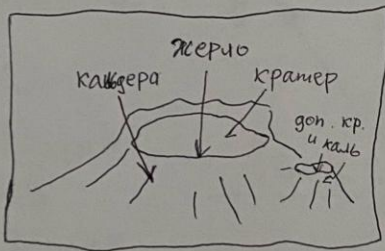 жерло
кальдера
кратер
доп. кр.
и каль